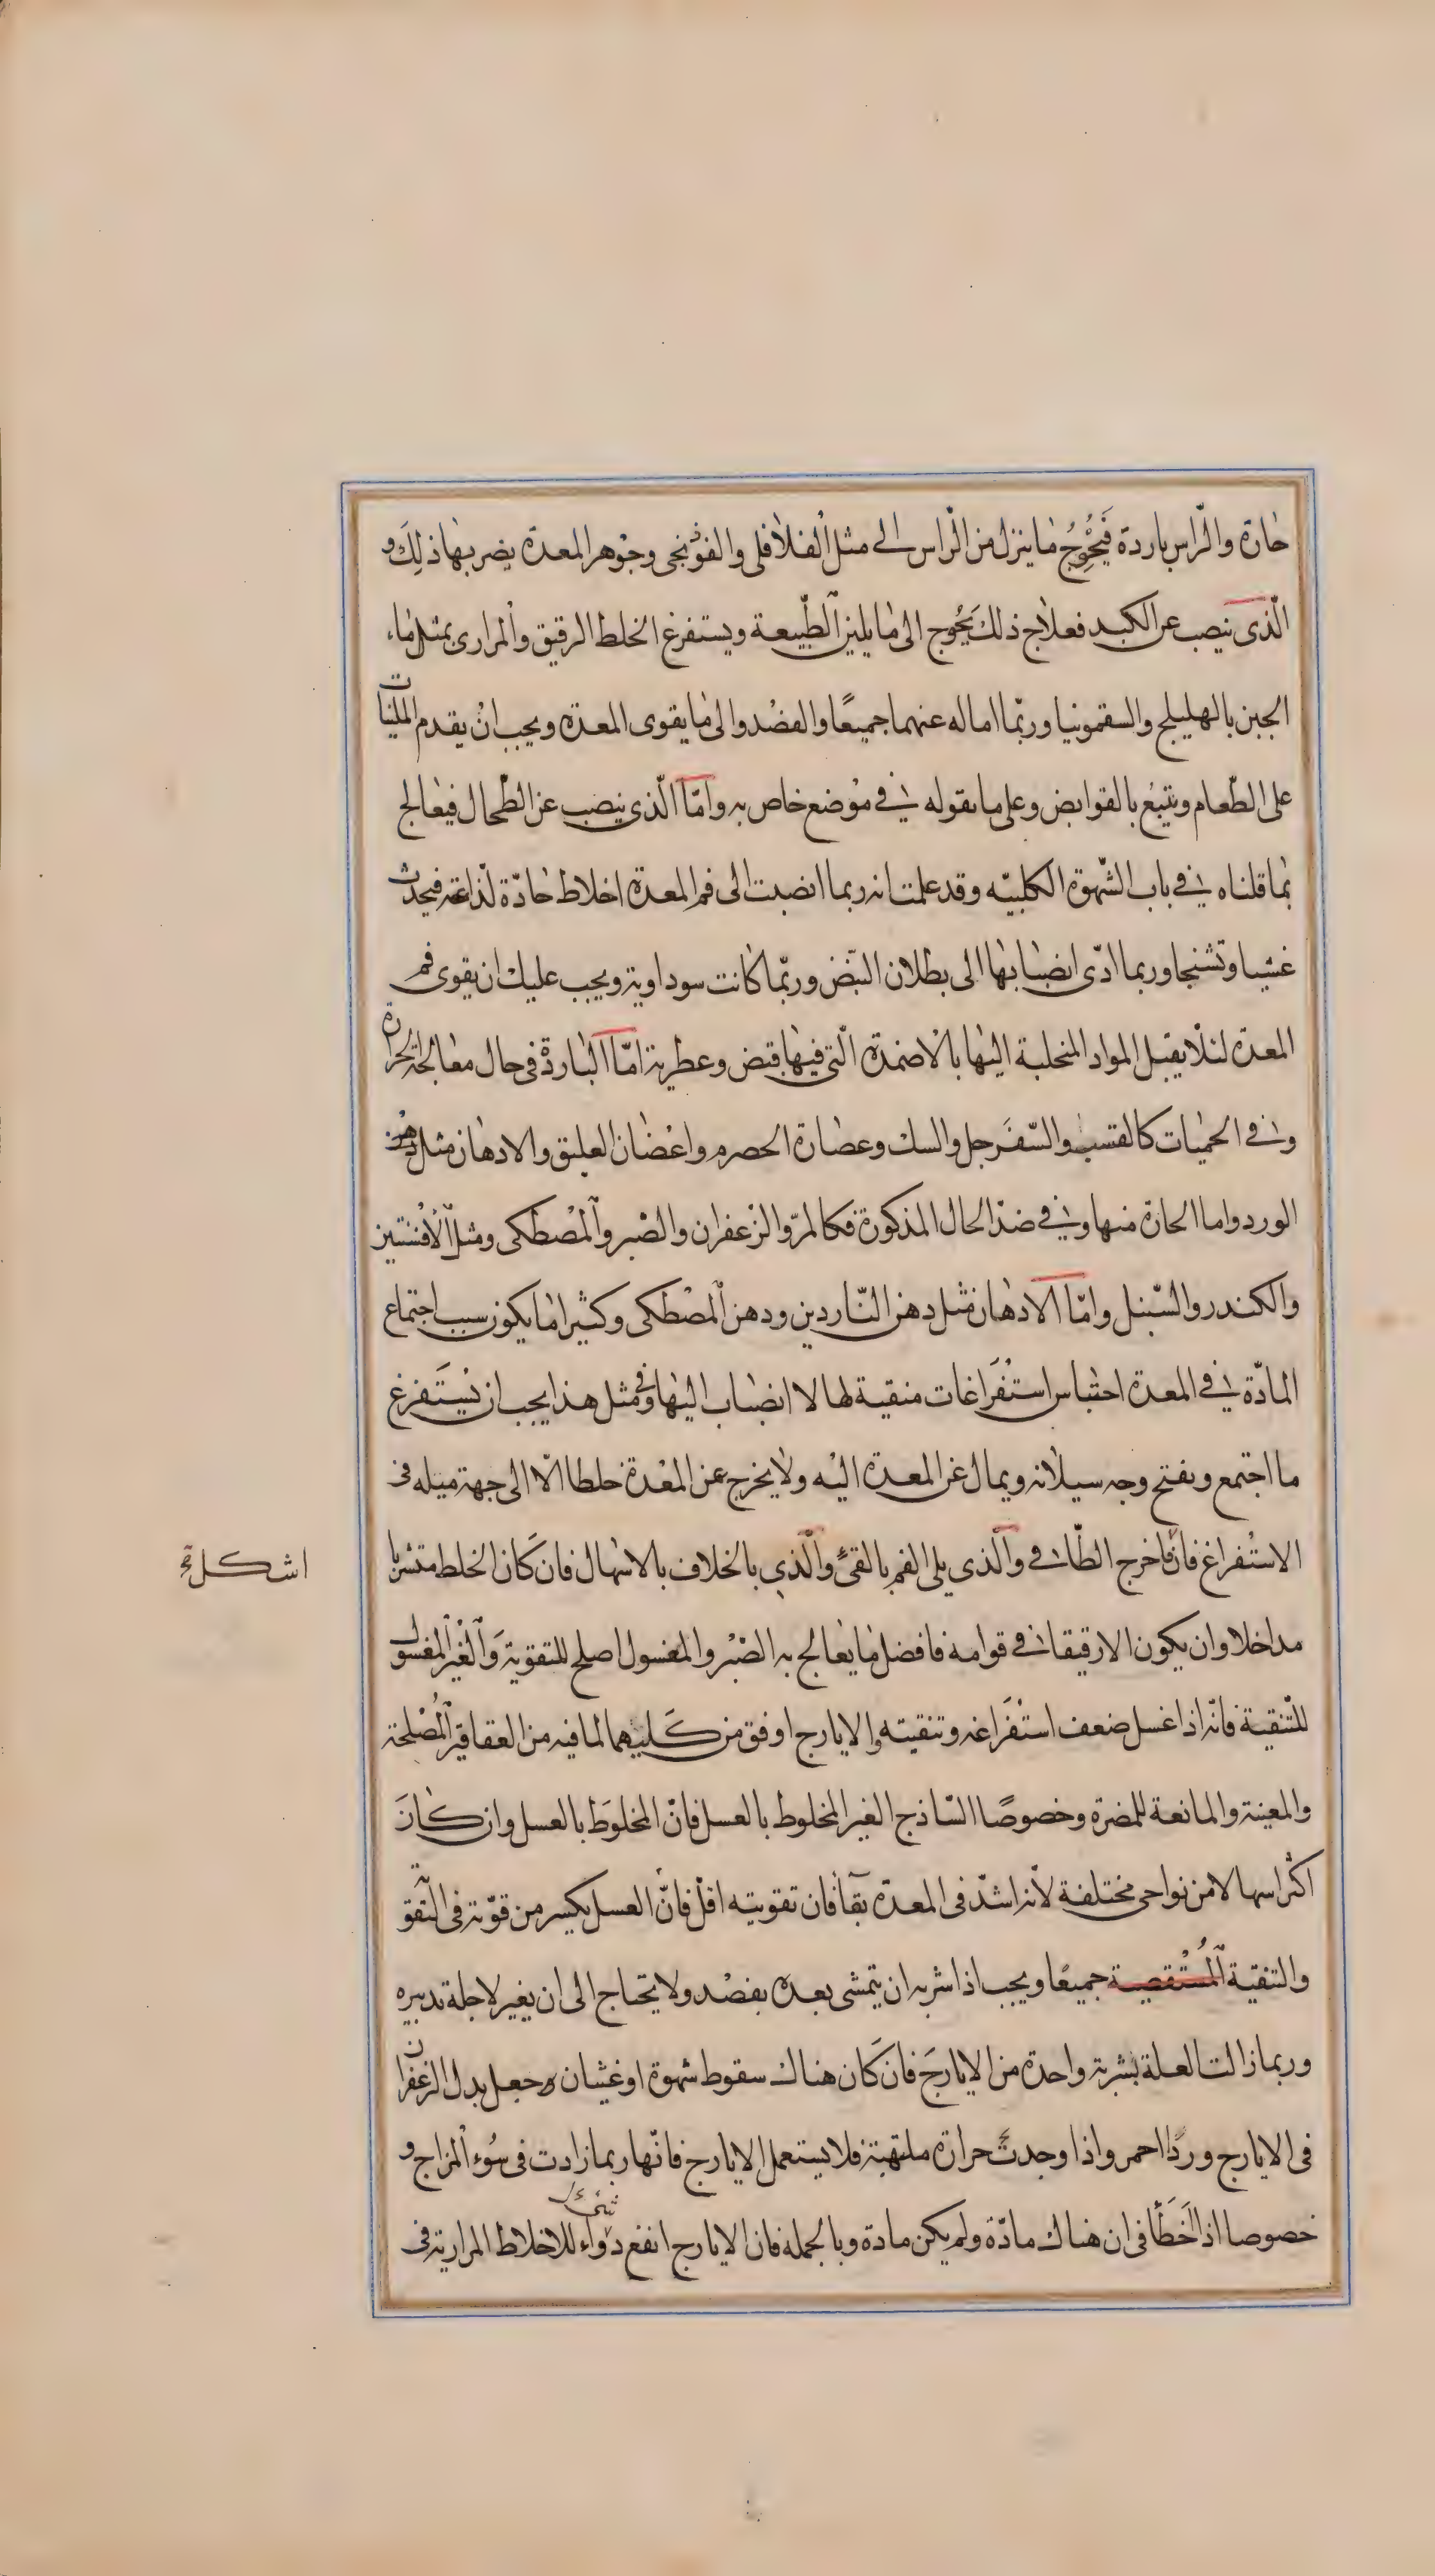 حارة والرّاس باردة فَيُحْوِجُ ما ينزل من الرّاس الى مثل الفلافلى والفوْنجى وجوْهر المعدة يضر بها ذلِكَ و
الّذى ينصب عن الكبد فعلاج ذلك يَحُوج الى ما يلين الطّبيعة ويستفرغ الخلط الرقيق والمرارى بمثل ماء
الجبن بالهليلج والسقمونيا وربّما اماله عنهما جميعًا والفصْد والى ما يقوى المعدة ويجب انْ يقدم الملينات
على الطّعام ويتبع بالقوابض وعلى ما نقوله فى موْضع خاص به وامّا الّذى ينصب عن الطّحال فيعالج
بما قلناه فى باب الشّهوة الكلبيّه وقد علمت انه ربما انصبت الى فم المعدة اخلاط حادّة لذّاعة فيحدث
غشيا وتشنجا وربما ادّى انصبابها الى بطلان النبض وربّما كانت سوداوية ويجب عليك ان يقوى فم
المعدة لئلّا يقبل المواد المنحلبة اليها بالاضمدة الّتى فيها قبض وعطرية امّا الباردة فى حال معالجة الحرارة
وفى الحميات كالقسب والسّفَرجل والسك وعصارة الحصرم واغصان العليق والادهان مثل دهن
الورد واما الحارة منها وفى ضدّ الحال المذكورة فكالمرّ والزعفران والصْبر والمصْطكى ومثل الأفسنتين
والكندر والسّنبل وامّا الادهان مثل دهن النّاردين ودهن المصْطكى وكثيرا ما يكون سبب اجتماع
المادّة فى المعدة احتباس استفْرَاغات منقية لها لا انصباب اليها وفى مثل هذا يجب ان يُستَفرغ
ما اجتمع ويفتح وجه سيلانه ويمال عن المعدة اليْه ولا يخرج عن المعْدة خلطا الّا الى جهة ميله فى
الاستفْراغ فان فاخرج الطّافى والّذى يلى الفم بالقئ والّذي بالخلاف بالاسهال فان كَان الخلط متشربا
مداخلا وان يكون الا رقيقا فى قوامه فافضل ما يعالج به الصْبْر والمغسول اصلح للتقوية وَالْغْير المغسول
للتّنقية فانّه اذا غسل ضعف استفْرَاغه وتنقيته والايارج اوفق من كَليهما لما فيه من العقاقير المُصْلحة
والمعينة والمانعة للمضرة وخصوصًا السّاذج الغير المخلوط بالعسل فانّ المخلوَط بالعسل وان كَانَ
اكثر اسهالا من نواحى مختلفة لأنه اشدّ فى المعدّة بقآ فان تقويته اقل فانّ العسل يكسر من قوّته فى التّقوية
والتنقية المُسْتقصية جميعًا ويجب اذا شربه ان يتمشى بعده بقصْد ولا يحتاج الى ان يغير لاجله تدبيره
وربما زالت العلة بشربة واحدة من الايارجَ فان كَان هناك سقوط شهوة او غشيان جعل بدل الزعفران
فى الايارج ورْدًا احمر واذا وجدتَّ حرارة ملتهبة فلا يستعمل الايارج فانّها ربما زادت فى سُوء المزاج و
خصوصا اذا اَخَطأ فى ان هناك مادّة ولم يكن مادة وبالجمله فان الايارج انفع دواء للاخلاط المرارية فى
شئ
اشكل